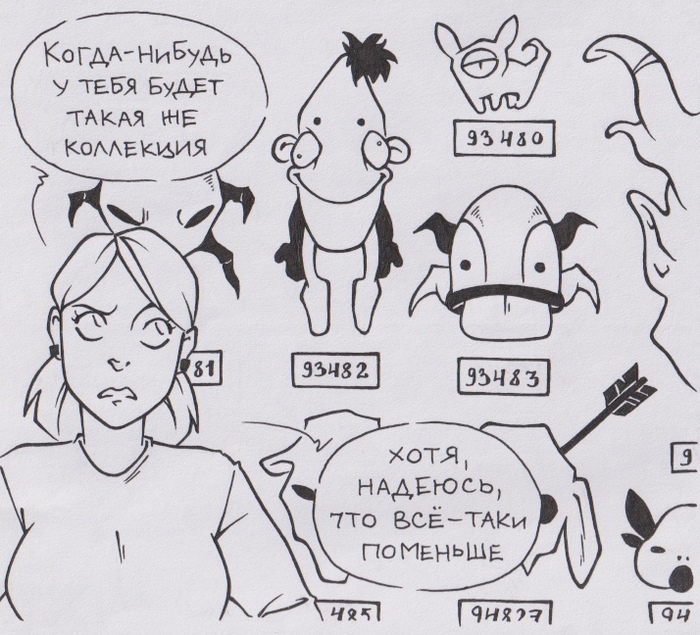 КОГДА-НИБУДЬ
У ТЕБЯ БУДЕТ
ТАКАЯ ЖЕ
КОЛЛЕКЦИЯ
93480
81
93482
93483
9
ХОТЯ,
НАДЕЮСЬ,
ЧТО ВСЁ-ТАКИ
ПОМЕНЬШЕ
485
94